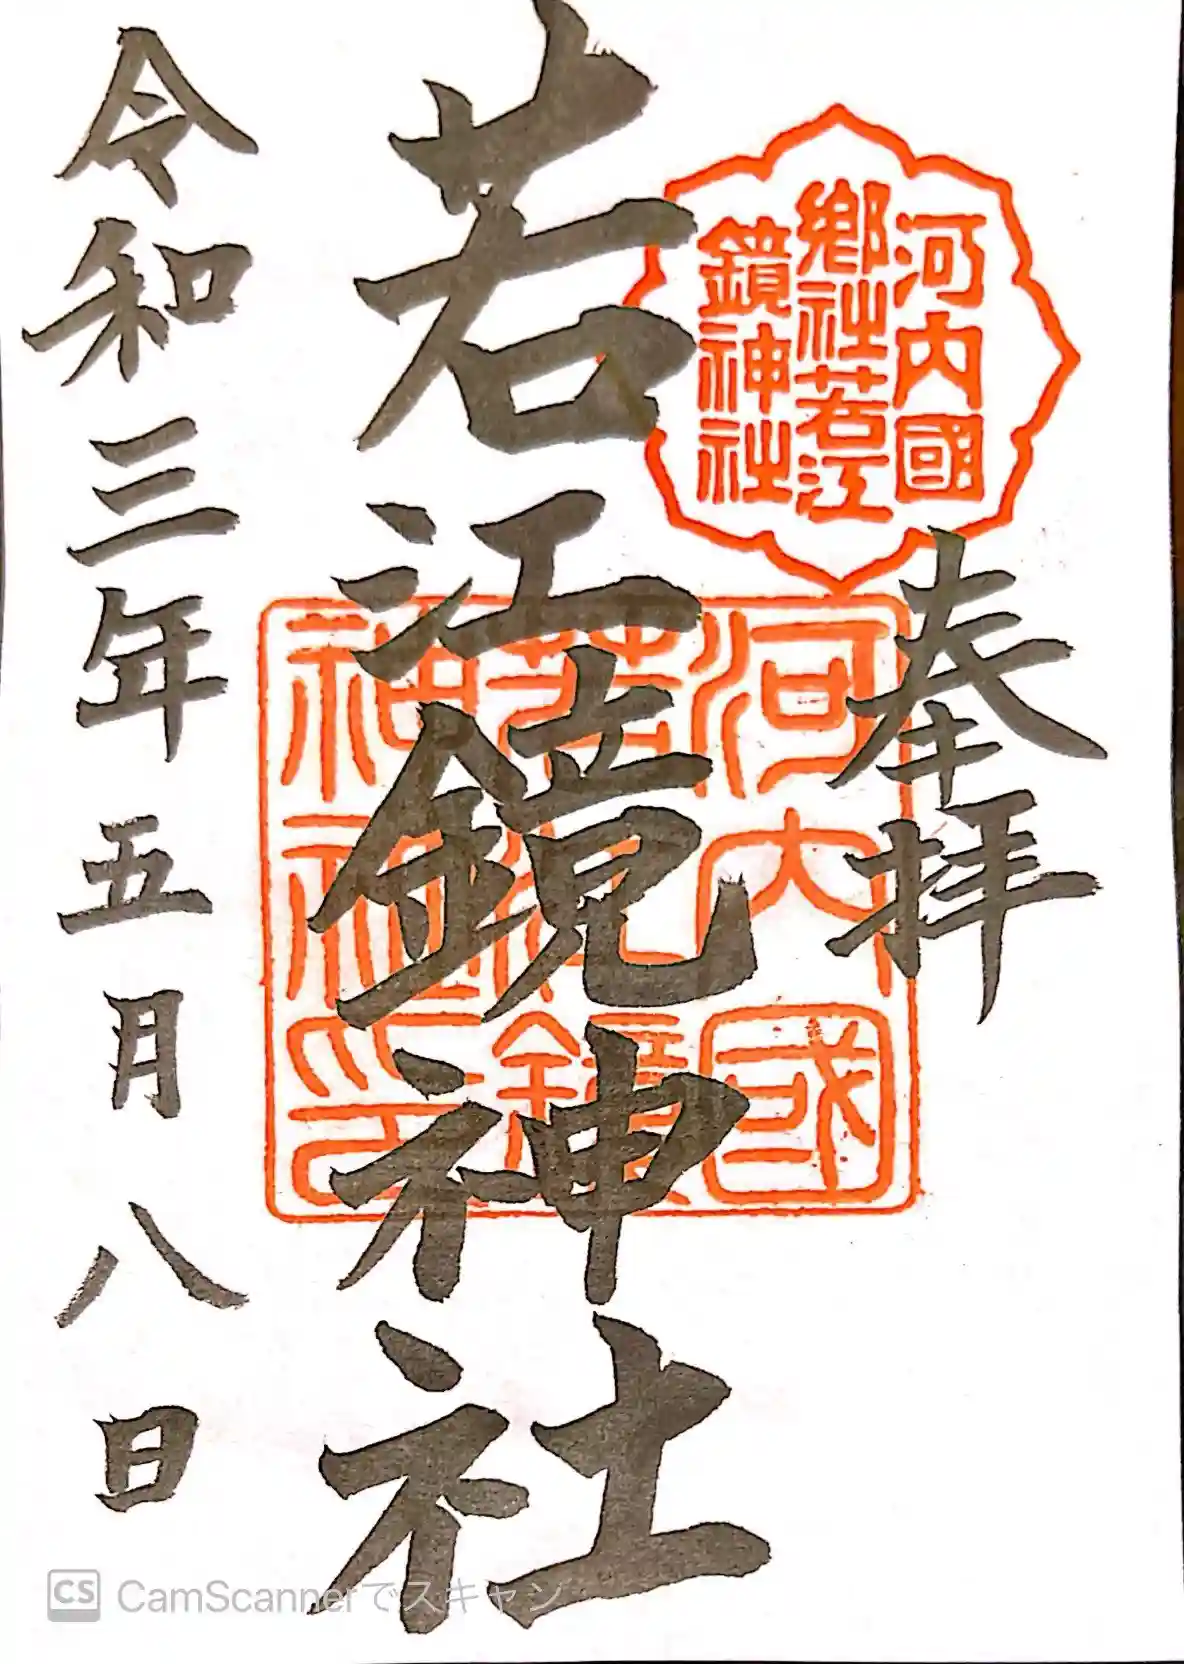 河内國
郷社若江
鏡神社
奉拝
河内國
若江鏡
神社印
若江鏡神社
令和三年五月八日
CS CamScannerでスキャン